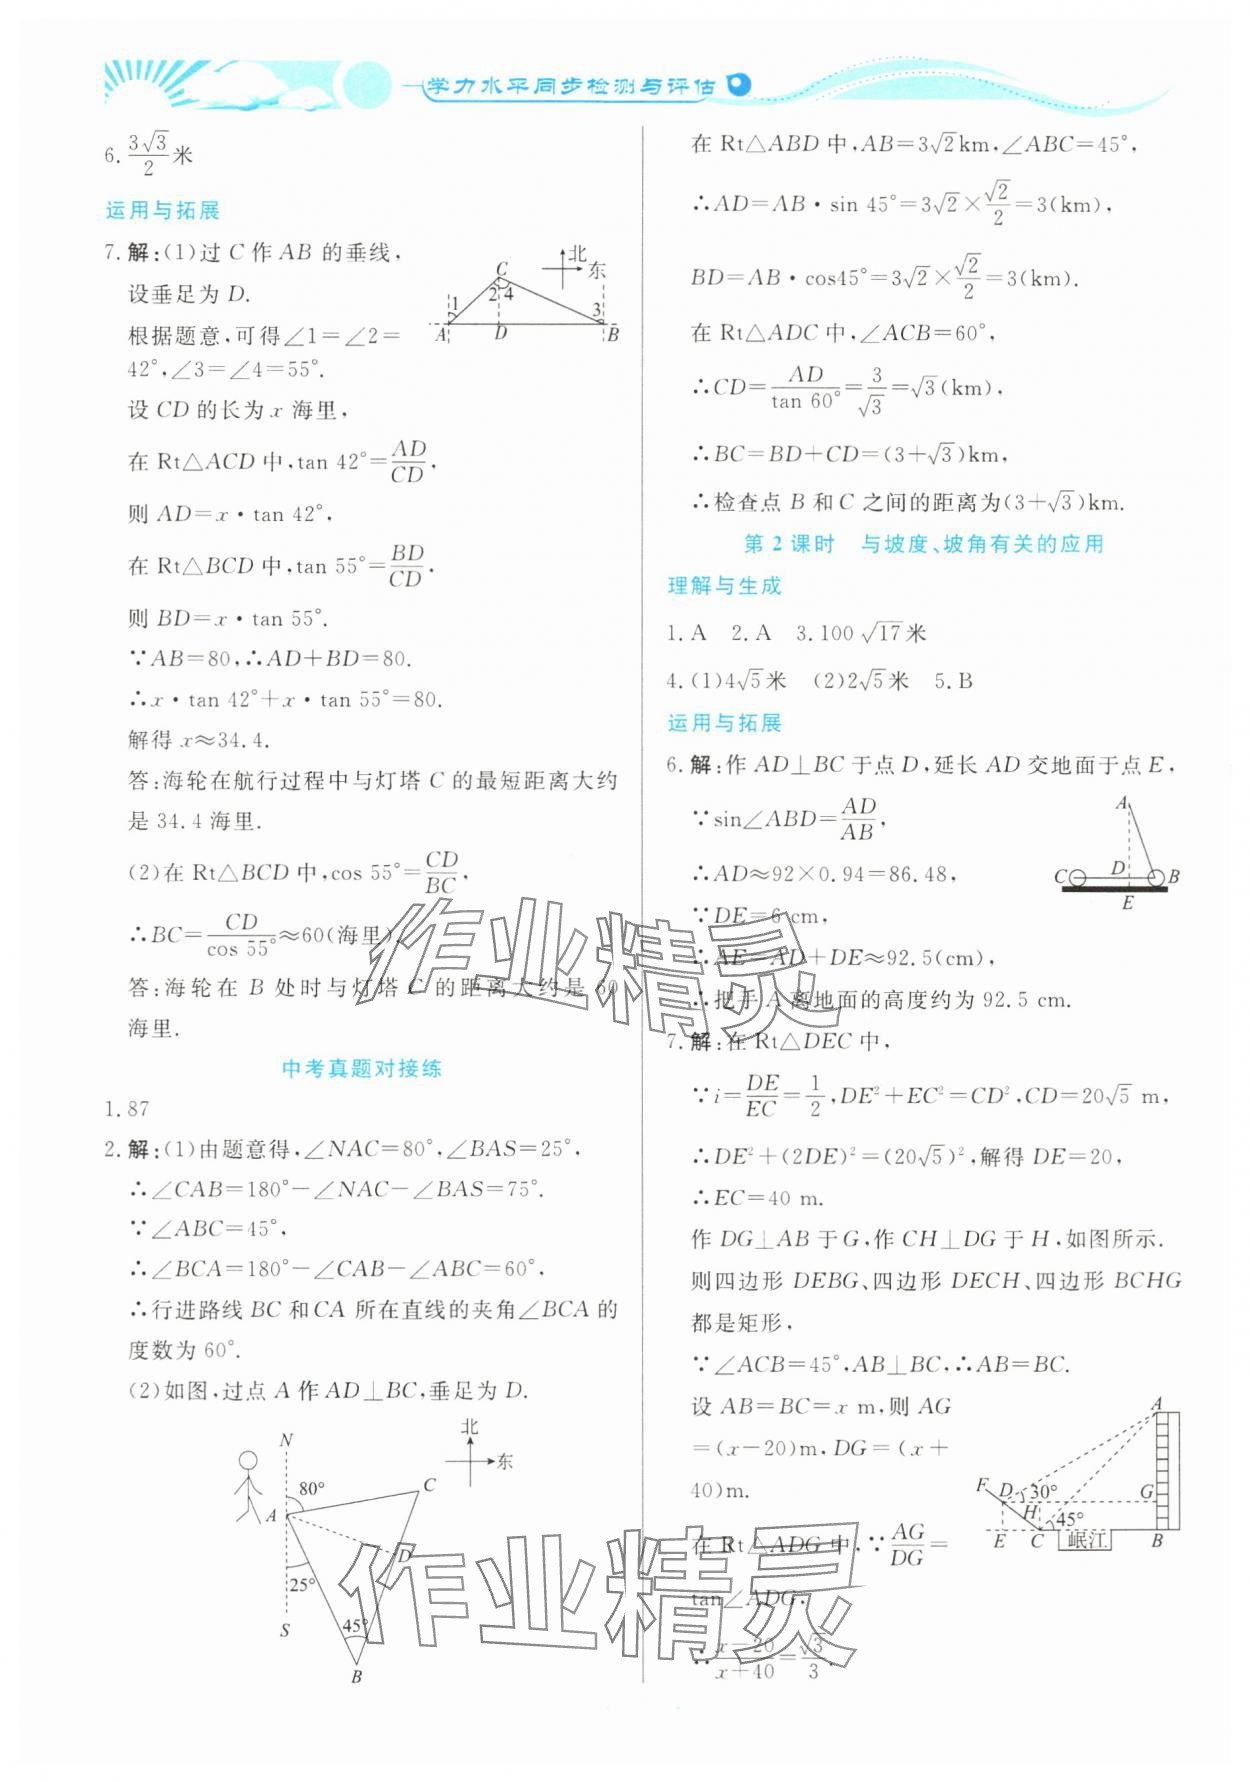 学力水平同步检测与评估
6.$\frac{3\sqrt{3}}{2}$米
运用与拓展
7.解:(1)过 C 作 AB 的垂线,
设垂足为 D.
根据题意,可得∠1=∠2=
42°,∠3=∠4=55°.
设 CD 的长为 x 海里,
在 Rt△ACD 中,tan 42°=$\frac{AD}{CD}$,
则 AD=x·tan 42°,
在 Rt△BCD 中,tan 55°=$\frac{BD}{CD}$,
则 BD=x·tan 55°.
∵AB=80,∴AD+BD=80.
∴x·tan 42°+x·tan 55°=80.
解得 x≈34.4.
答:海轮在航行过程中与灯塔 C 的最短距离大约
是 34.4 海里.
(2)在 Rt△BCD 中,cos 55°=$\frac{CD}{BC}$,
∴BC=$\frac{CD}{cos 55°}$≈60(海里).
答:海轮在 B 处时与灯塔 C 的距离大约是 60
海里.
北
东
C
1
2
4
3
A
D
B
中考真题对接练
1.87
2.解:(1)由题意得,∠NAC=80°,∠BAS=25°,
∴∠CAB=180°-∠NAC-∠BAS=75°.
∵∠ABC=45°,
∴∠BCA=180°-∠CAB-∠ABC=60°,
∴行进路线 BC 和CA 所在直线的夹角∠BCA 的
度数为 60°.
(2)如图,过点 A 作 AD⊥BC,垂足为 D.
N
北
东
80°
C
A
D
25°
S
45°
B
在 Rt△ABD 中,AB=3$\sqrt{2}$km,∠ABC=45°,
∴AD=AB·sin 45°=3$\sqrt{2}$×$\frac{\sqrt{2}}{2}$=3(km),
BD=AB·cos45°=3$\sqrt{2}$×$\frac{\sqrt{2}}{2}$=3(km).
在 Rt△ADC 中,∠ACB=60°,
∴CD=$\frac{AD}{tan 60°}$=$\frac{3}{\sqrt{3}}$=$\sqrt{3}$(km),
∴BC=BD+CD=(3+$\sqrt{3}$)km,
∴检查点 B 和 C 之间的距离为(3+$\sqrt{3}$)km.
第 2 课时 与坡度、坡角有关的应用
理解与生成
1.A 2.A 3.100$\sqrt{17}$米
4.(1)4$\sqrt{5}$米 (2)2$\sqrt{5}$米 5.B
运用与拓展
6.解:作 AD⊥BC 于点 D,延长 AD 交地面于点 E,
∵sin∠ABD=$\frac{AD}{AB}$,
∴AD≈92×0.94=86.48,
∵DE=6 cm,
∴AE=AD+DE≈92.5(cm),
∴把手 A 离地面的高度约为 92.5 cm.
A
C
D
B
E
7.解:在 Rt△DEC 中,
∵i=$\frac{DE}{EC}$=$\frac{1}{2}$,DE²+EC²=CD²,CD=20$\sqrt{5}$ m,
∴DE²+(2DE)²=(20$\sqrt{5}$)²,解得 DE=20,
∴EC=40 m.
作 DG⊥AB 于 G,作 CH⊥DG 于 H,如图所示.
则四边形 DEBG、四边形 DECH、四边形 BCHG
都是矩形,
∵∠ACB=45°,AB⊥BC,∴AB=BC.
设 AB=BC=x m,则 AG
=(x-20)m,DG=(x+
40)m.
在 Rt△ADG 中,∵$\frac{AG}{DG}$=
tan∠ADG,
∴$\frac{x-20}{x+40}$=$\frac{\sqrt{3}}{3}$.
A
F
D
30°
G
H
45°
E
C
岷江
B
作业精灵
作业精灵